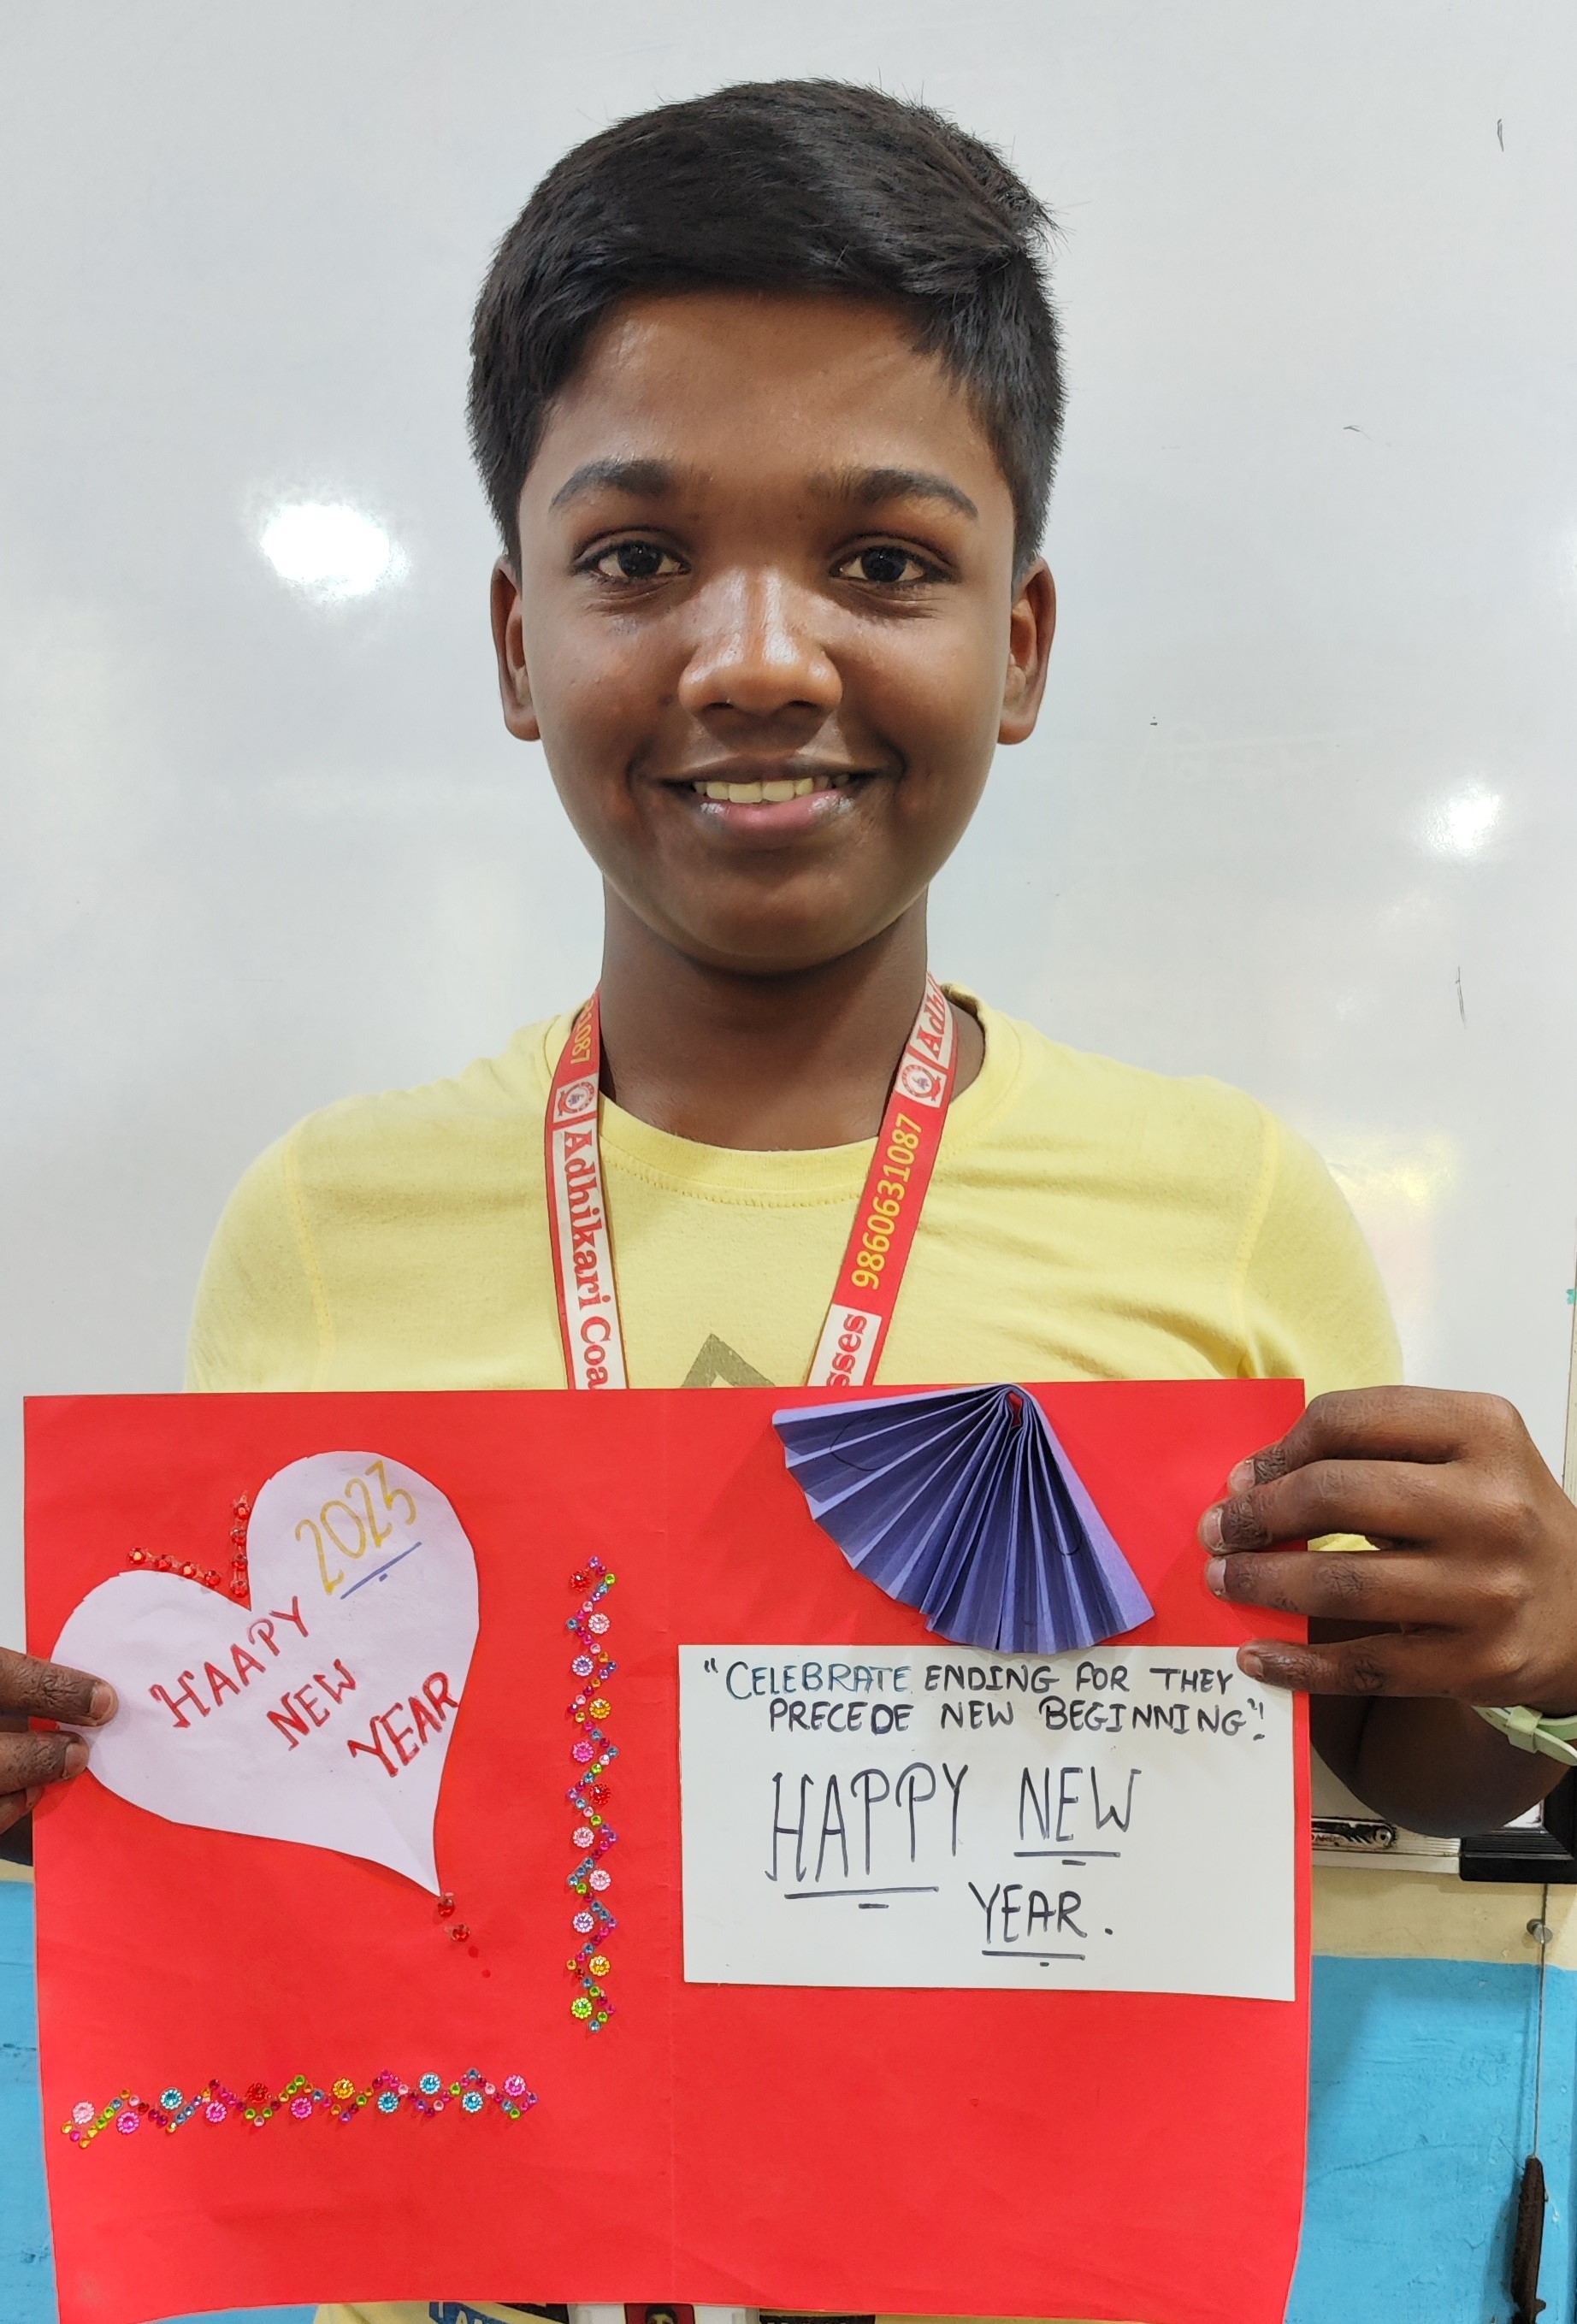 1087
Adhikari Coa
Adhi
9860631087
sses
2023
HAAPY
NEW
YEAR
"CELEBRATE ENDING FOR THEY
PRECEDE NEW BEGINNING"!
HAPPY NEW
YEAR.